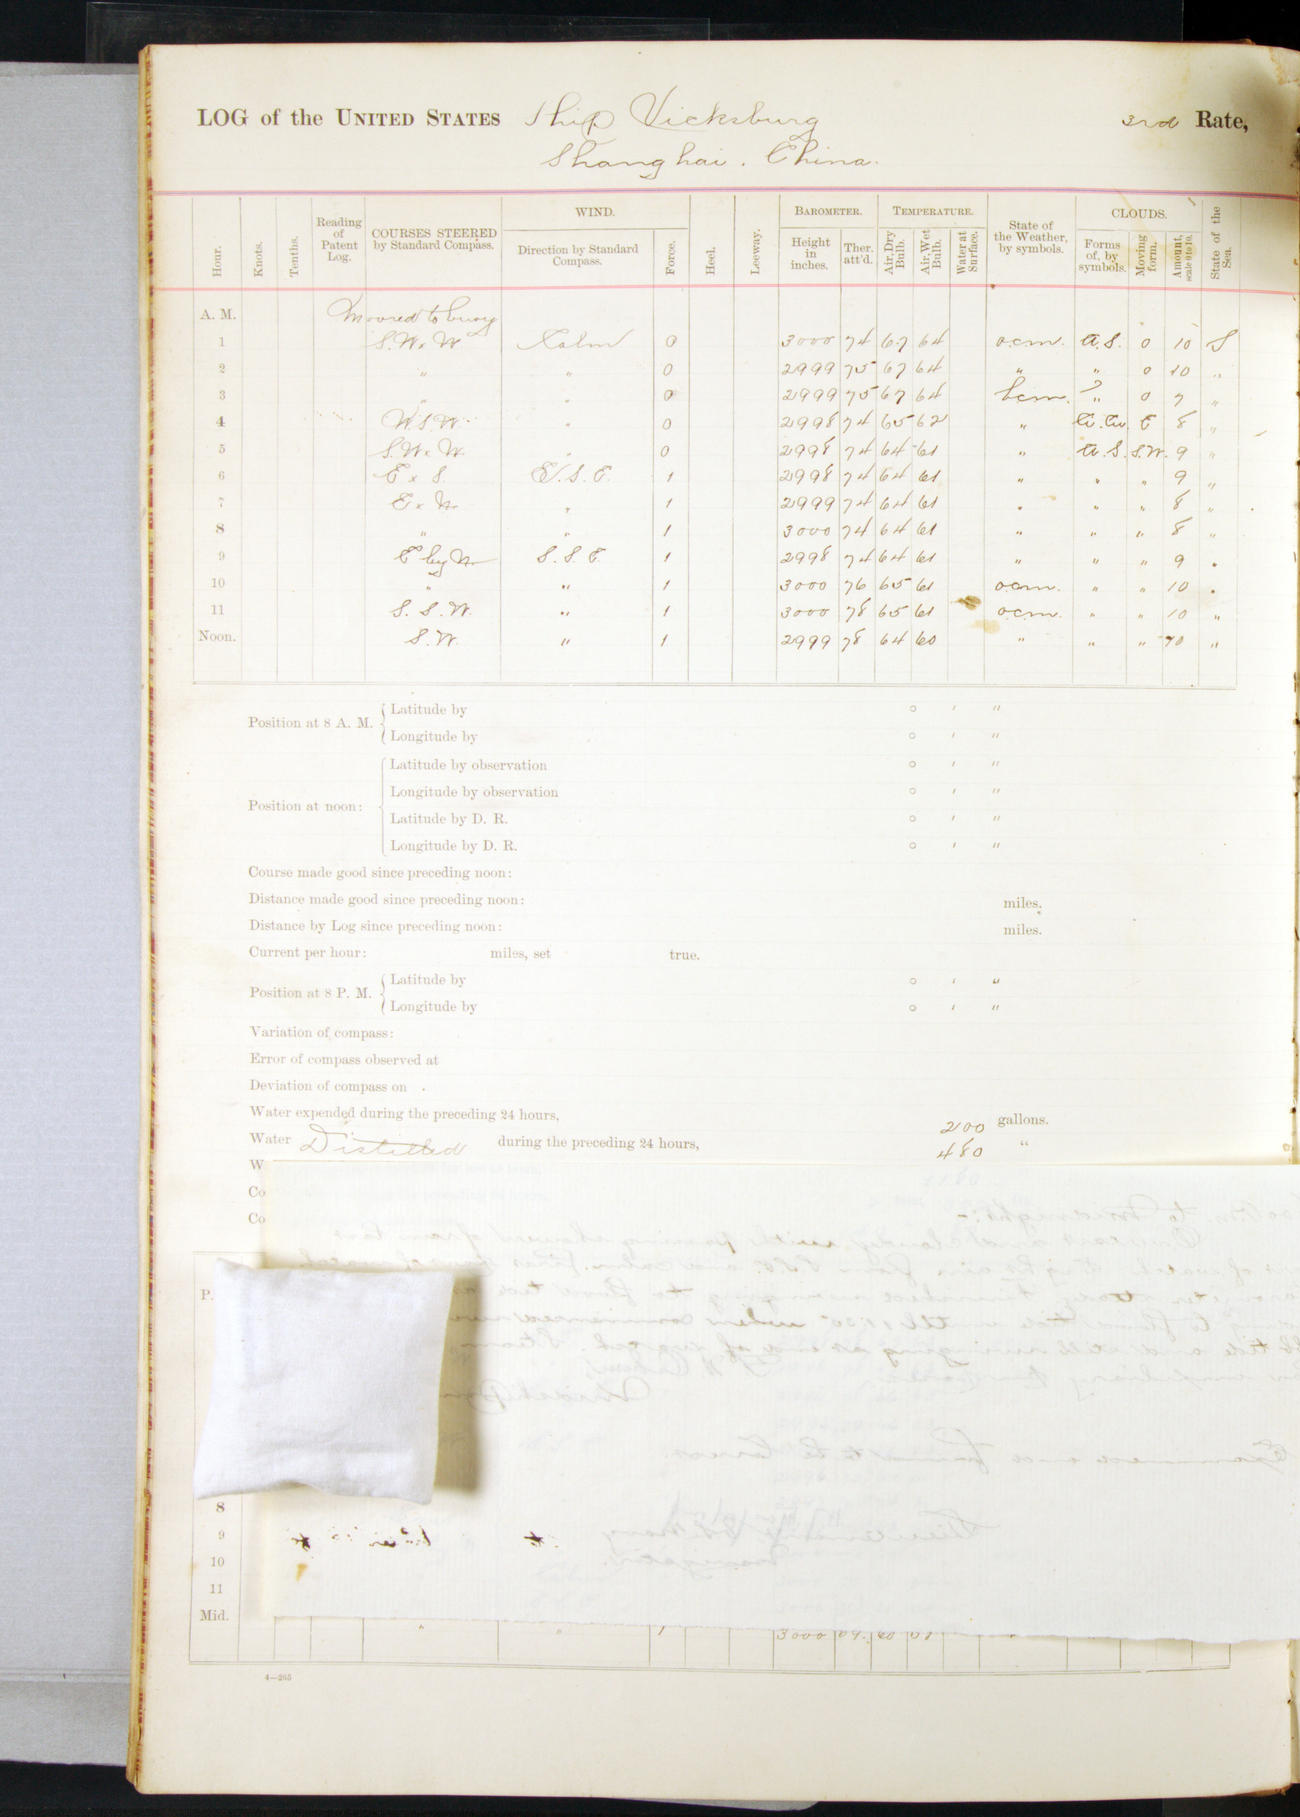 LOG of the UNITED STATES Ship Vicksburg 3rd Rate,
Shanghai. China.
Hour. Knots. Tenths. Reading of Patent Log. COURSES STEERED by Standard Compass. WIND. Direction by Standard Compass. Force. Heel. Leeway. BAROMETER. Height in inches. Ther. att'd. TEMPERATURE. Air, Dry Bulb. Air, Wet Bulb. Water at Surface. State of the Weather, by symbols. CLOUDS. Forms of, by symbols. Moving form. Amount, scale 0 to 10. State of the Sea.
A. M. Moored to buoy
1 S.W. x W Calm 0 3000 74 67 64 o.c.m. A.S. 0 10 S
2 " " 0 2999 75 67 64 " " 0 10 "
3 " " 0 2999 75 67 64 b.c.m. " 0 7 "
4 W.S.W. " 0 2998 74 65 62 " Ci.Cu. E 8 "
5 S.W. x W. " 0 2998 74 64 61 " A.S. S.W. 9 "
6 E x S. E.S.E. 1 2998 74 64 61 " " " 9 "
7 E x N. " 1 2999 74 64 61 " " " 8 "
8 " " 1 3000 74 64 61 " " " 8 "
9 E by N. S.S.E. 1 2998 74 64 61 " " " 9 "
10 " " 1 3000 76 65 61 o.c.m. " " 10 "
11 S.S.W. " 1 3000 78 65 61 o.c.m. " " 10 "
Noon. S.W. " 1 2999 78 64 60 " " " 10 "
Position at 8 A. M. Latitude by ° ' "
Longitude by ° ' "
Position at noon: Latitude by observation ° ' "
Longitude by observation ° ' "
Latitude by D. R. ° ' "
Longitude by D. R. ° ' "
Course made good since preceding noon:
Distance made good since preceding noon: miles.
Distance by Log since preceding noon: miles.
Current per hour: miles, set true.
Position at 8 P. M. Latitude by ° ' "
Longitude by ° ' "
Variation of compass:
Error of compass observed at
Deviation of compass on
Water expended during the preceding 24 hours, 200 gallons.
Water Distilled during the preceding 24 hours, 480 "
W
Co
Co
P.
8
9
10
11
Mid. " " 1 3000
4—265